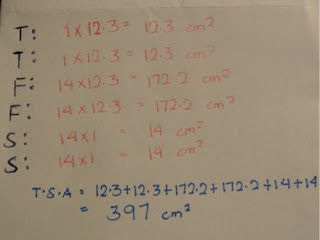 T: 1×12·3 = 12·3 cm²
T: 1×12·3 = 12·3 cm²
F: 14×12·3 = 172·2 cm²
F: 14×12·3 = 172·2 cm²
S: 14×1 = 14 cm²
S: 14×1 = 14 cm²
T·S·A = 12·3+12·3+172·2+172·2+14+14
= 397 cm²